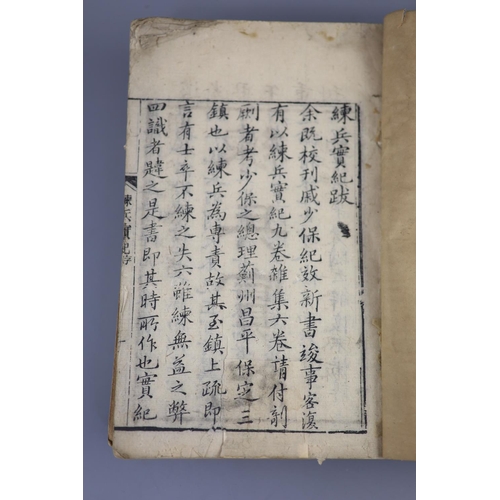 練兵實紀跋
余既校刊戚少保紀效新書竣事客復
有以練兵實紀九卷雜集六卷請付剞
劂者考少保之總理薊州昌平保定三
鎮也以練兵為專責故其至鎮上疏即
言有士卒不練之失六雖練無益之弊
四識者韙之是書即其時所作也實紀
練兵實紀序
一